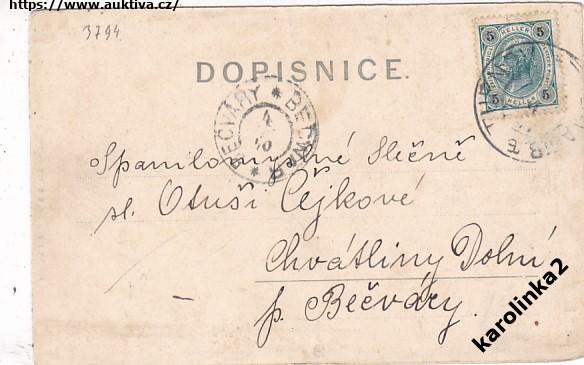 https://www.auktiva.cz/
3794
DOPISNICE.
5 HELLER 5
5 HELLER 5
BEČVÁRY * BEČWAR *
4
Spanilomyslné Slečně
sl. Otuši Čejkové
Chvátliny Dolní
p. Bečváry.
karolinka2